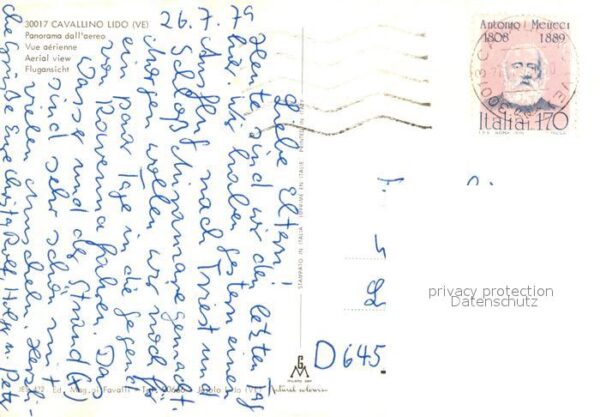 30017 CAVALLINO LIDO (VE)
Panorama dall'aereo
Vue aérienne
Aerial view
Flugansicht
26.7.79
Liebe Eltern!
Heute sind wir den letzten Tag
hier, wir haben gestern einen
Ausflug nach Triest und
Schloß Miramare gemacht.
Morgen wollen wir noch für
ein paar Tage in die Gegend
von Ravenna fahren. Das
Wasser und der Strand
sind sehr schön mit
vielen Muscheln. Herz-
liche Grüße Eure Christa, Rolf, Holger u. Petra
STAMPATO IN ITALIA
Antonio Meucci
1808 1889
Italia 170
privacy protection
Datenschutz
D 645